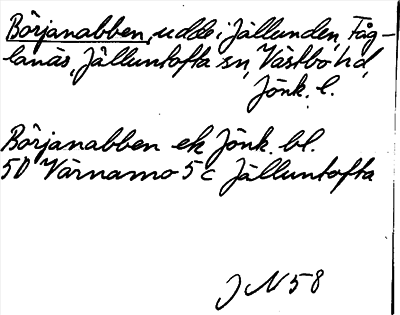 Börjanabben, udde i Jällunden, Fåg-
lanäs, Jälluntofta sn, Västbo hd,
Jönk. l.
Börjanabben ek Jönk. bl.
5D Värnamo 5c Jälluntofta
JN58